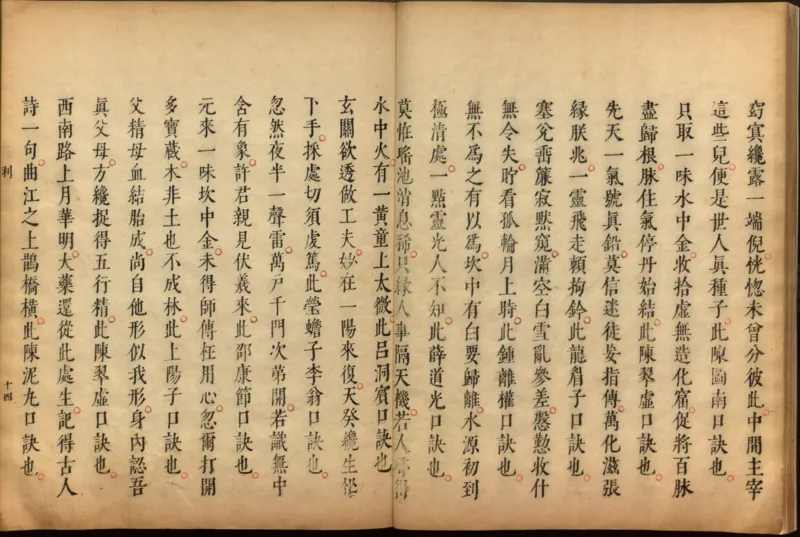 窈冥纔露一端倪恍惚未曾分彼此中間主宰
這些兒便是世人眞種子此陳圖南口訣也
只取一味水中金收拾虛無造化窟促將百脉
盡歸根脉住氣停丹始結此陳翠虛口訣也
先天一氣號眞鉛莫信迷徒妄指傳萬化滋張
緣朕兆一靈飛走賴拘鈐此龍眉子口訣也
塞兊垂簾寂默窺滿空白雪亂參差慇懃收什
無令失貯看孤輪月上時此鍾離權口訣也
無不爲之有以爲坎中有白要歸離水源初到
極清處一點靈光人不知此薛道光口訣也
莫怪瑤池消息稀只緣人事隔天機若人尋得
水中火有一黃童上太微此呂洞賓口訣也
玄關欲透做工夫妙在一陽來復天癸纔生忙
下手採處切須虔篤此瑩蟾子李翁口訣也
忽然夜半一聲雷萬戸千門次第開若識無中
含有象許君親見伏羲來此邵康節口訣也
元來一味坎中金未得師傳枉用心忽爾打開
多寶藏木非土也不成林此上陽子口訣也
父精母血結胎成尚自他形似我形身內認吾
眞父母方纔捉得五行精此陳翠虛口訣也
西南路上月華明大藥還從此處生記得古人
詩一句曲江之上鵲橋橫此陳泥丸口訣也
利 十四